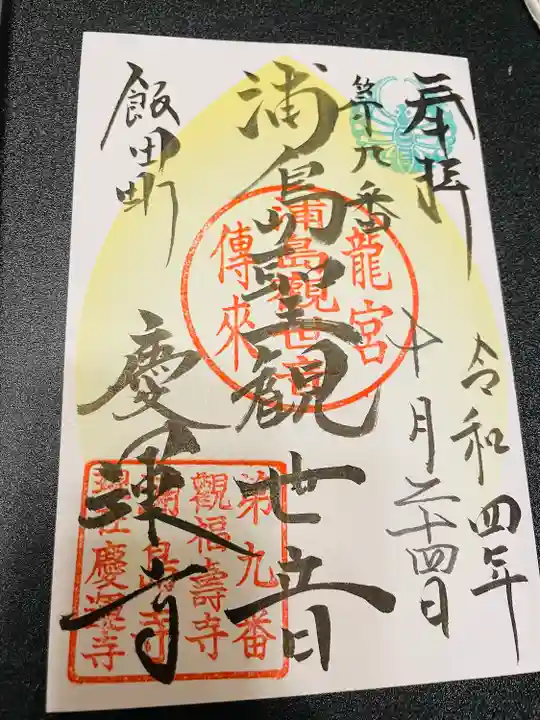 奉拝
令和四年
十月二十四日
第九番
浦島聖観世音
飯田町
慶運寺
龍宮
浦島觀世音
傳來
第九番
觀福壽寺
浦島寺
慶運寺